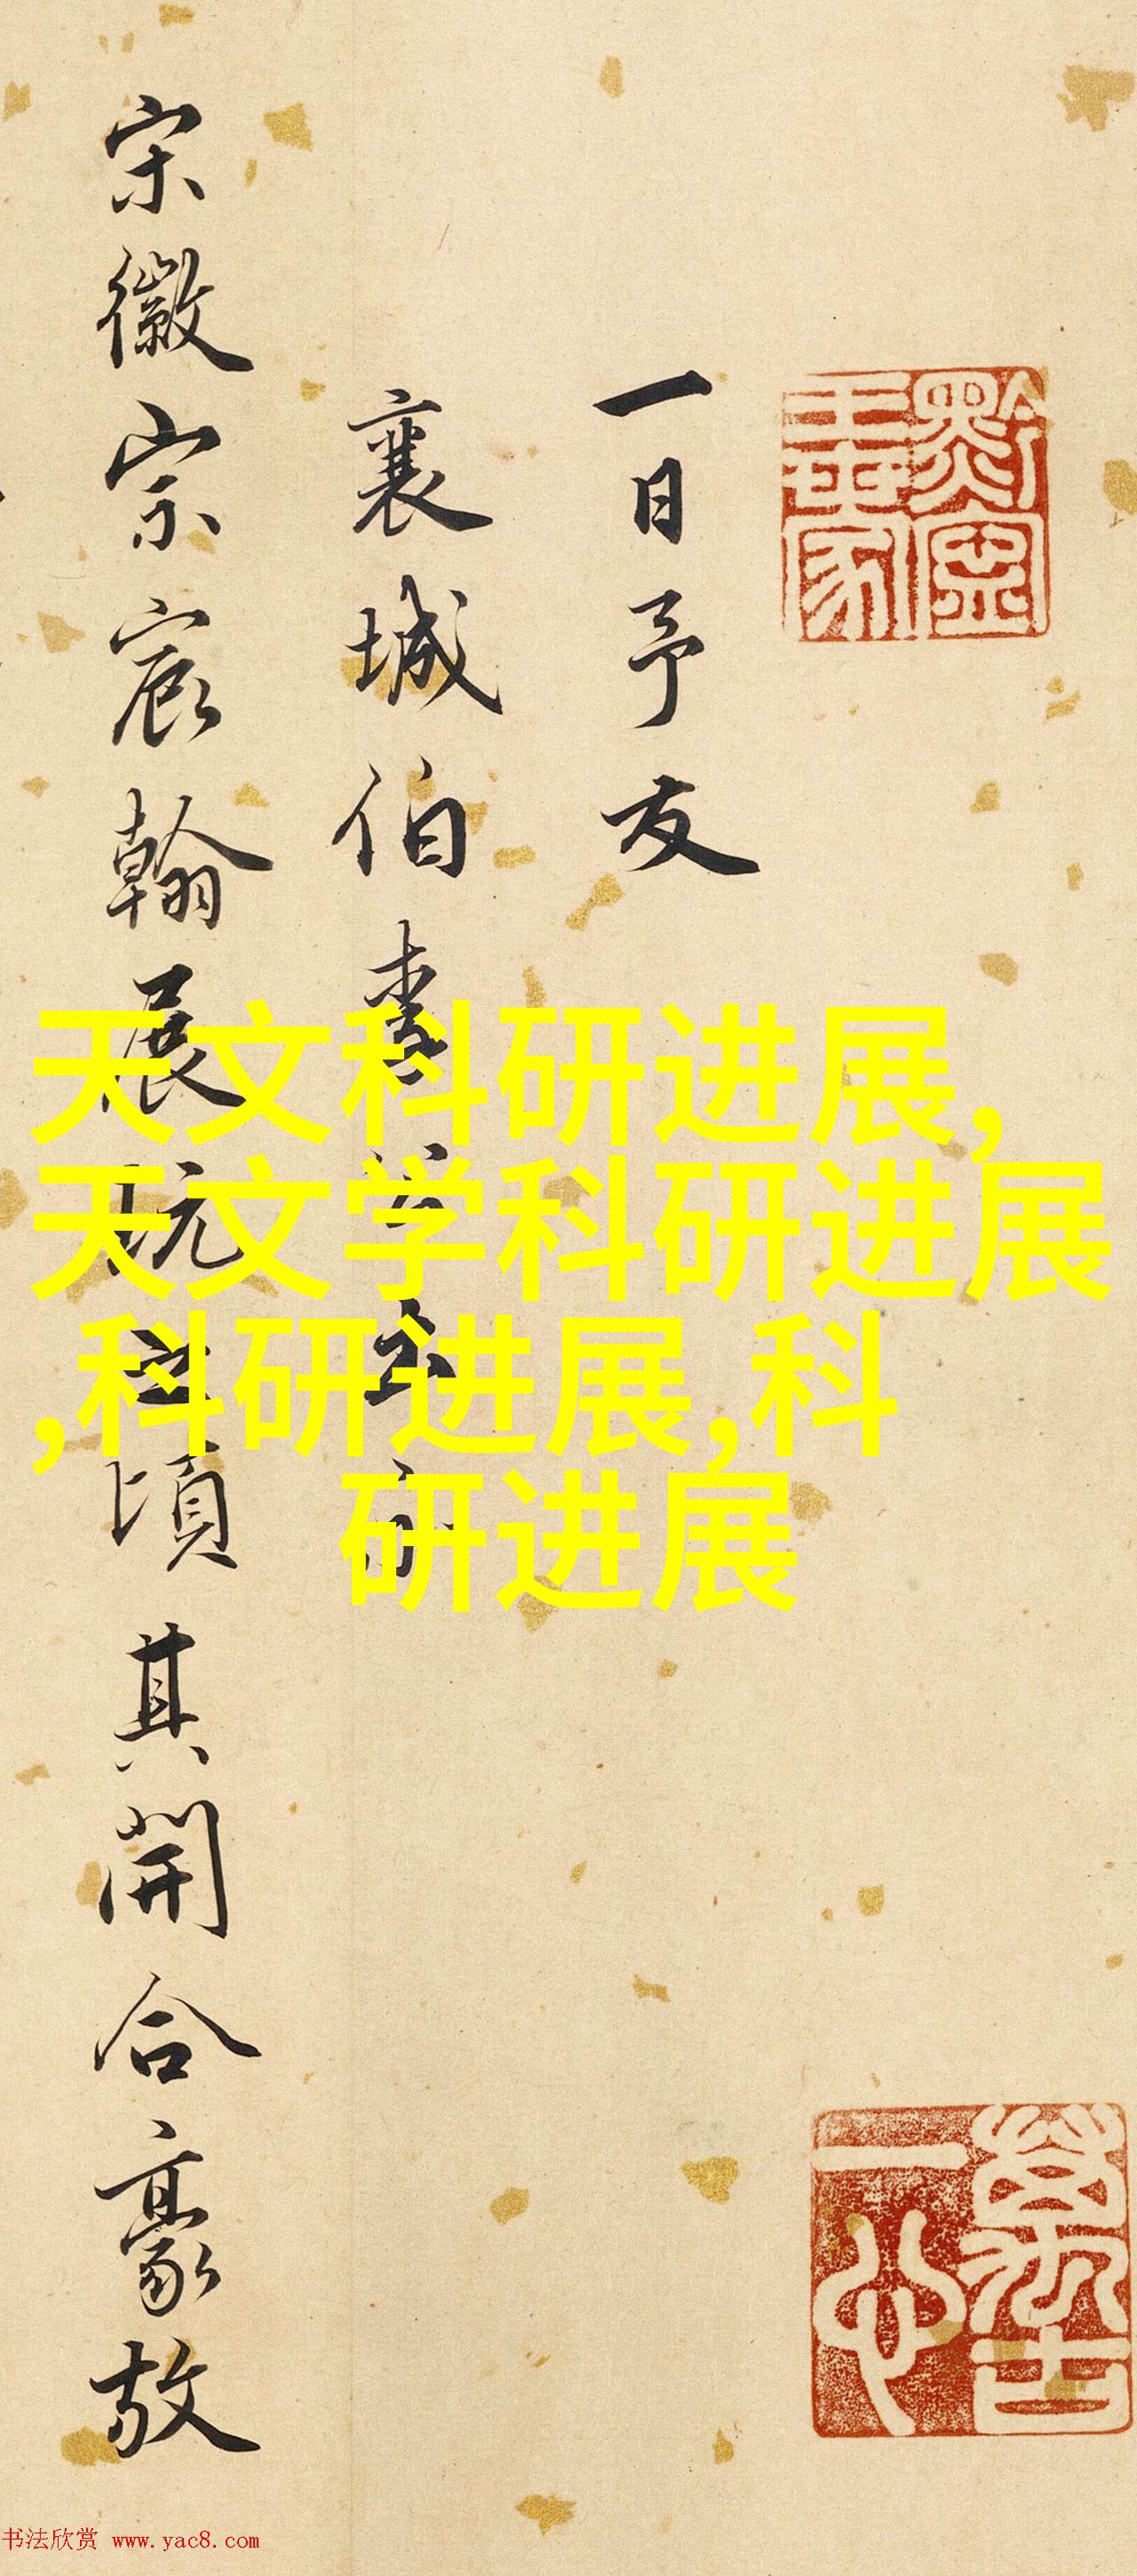 一日予友
襄城伯
宋徽宗宸翰展玩之頃其開合豪放
天文科研进展,
天文学科研进展
,科研进展,科
研进展
萬古
一心
书法欣赏 www.yac8.com